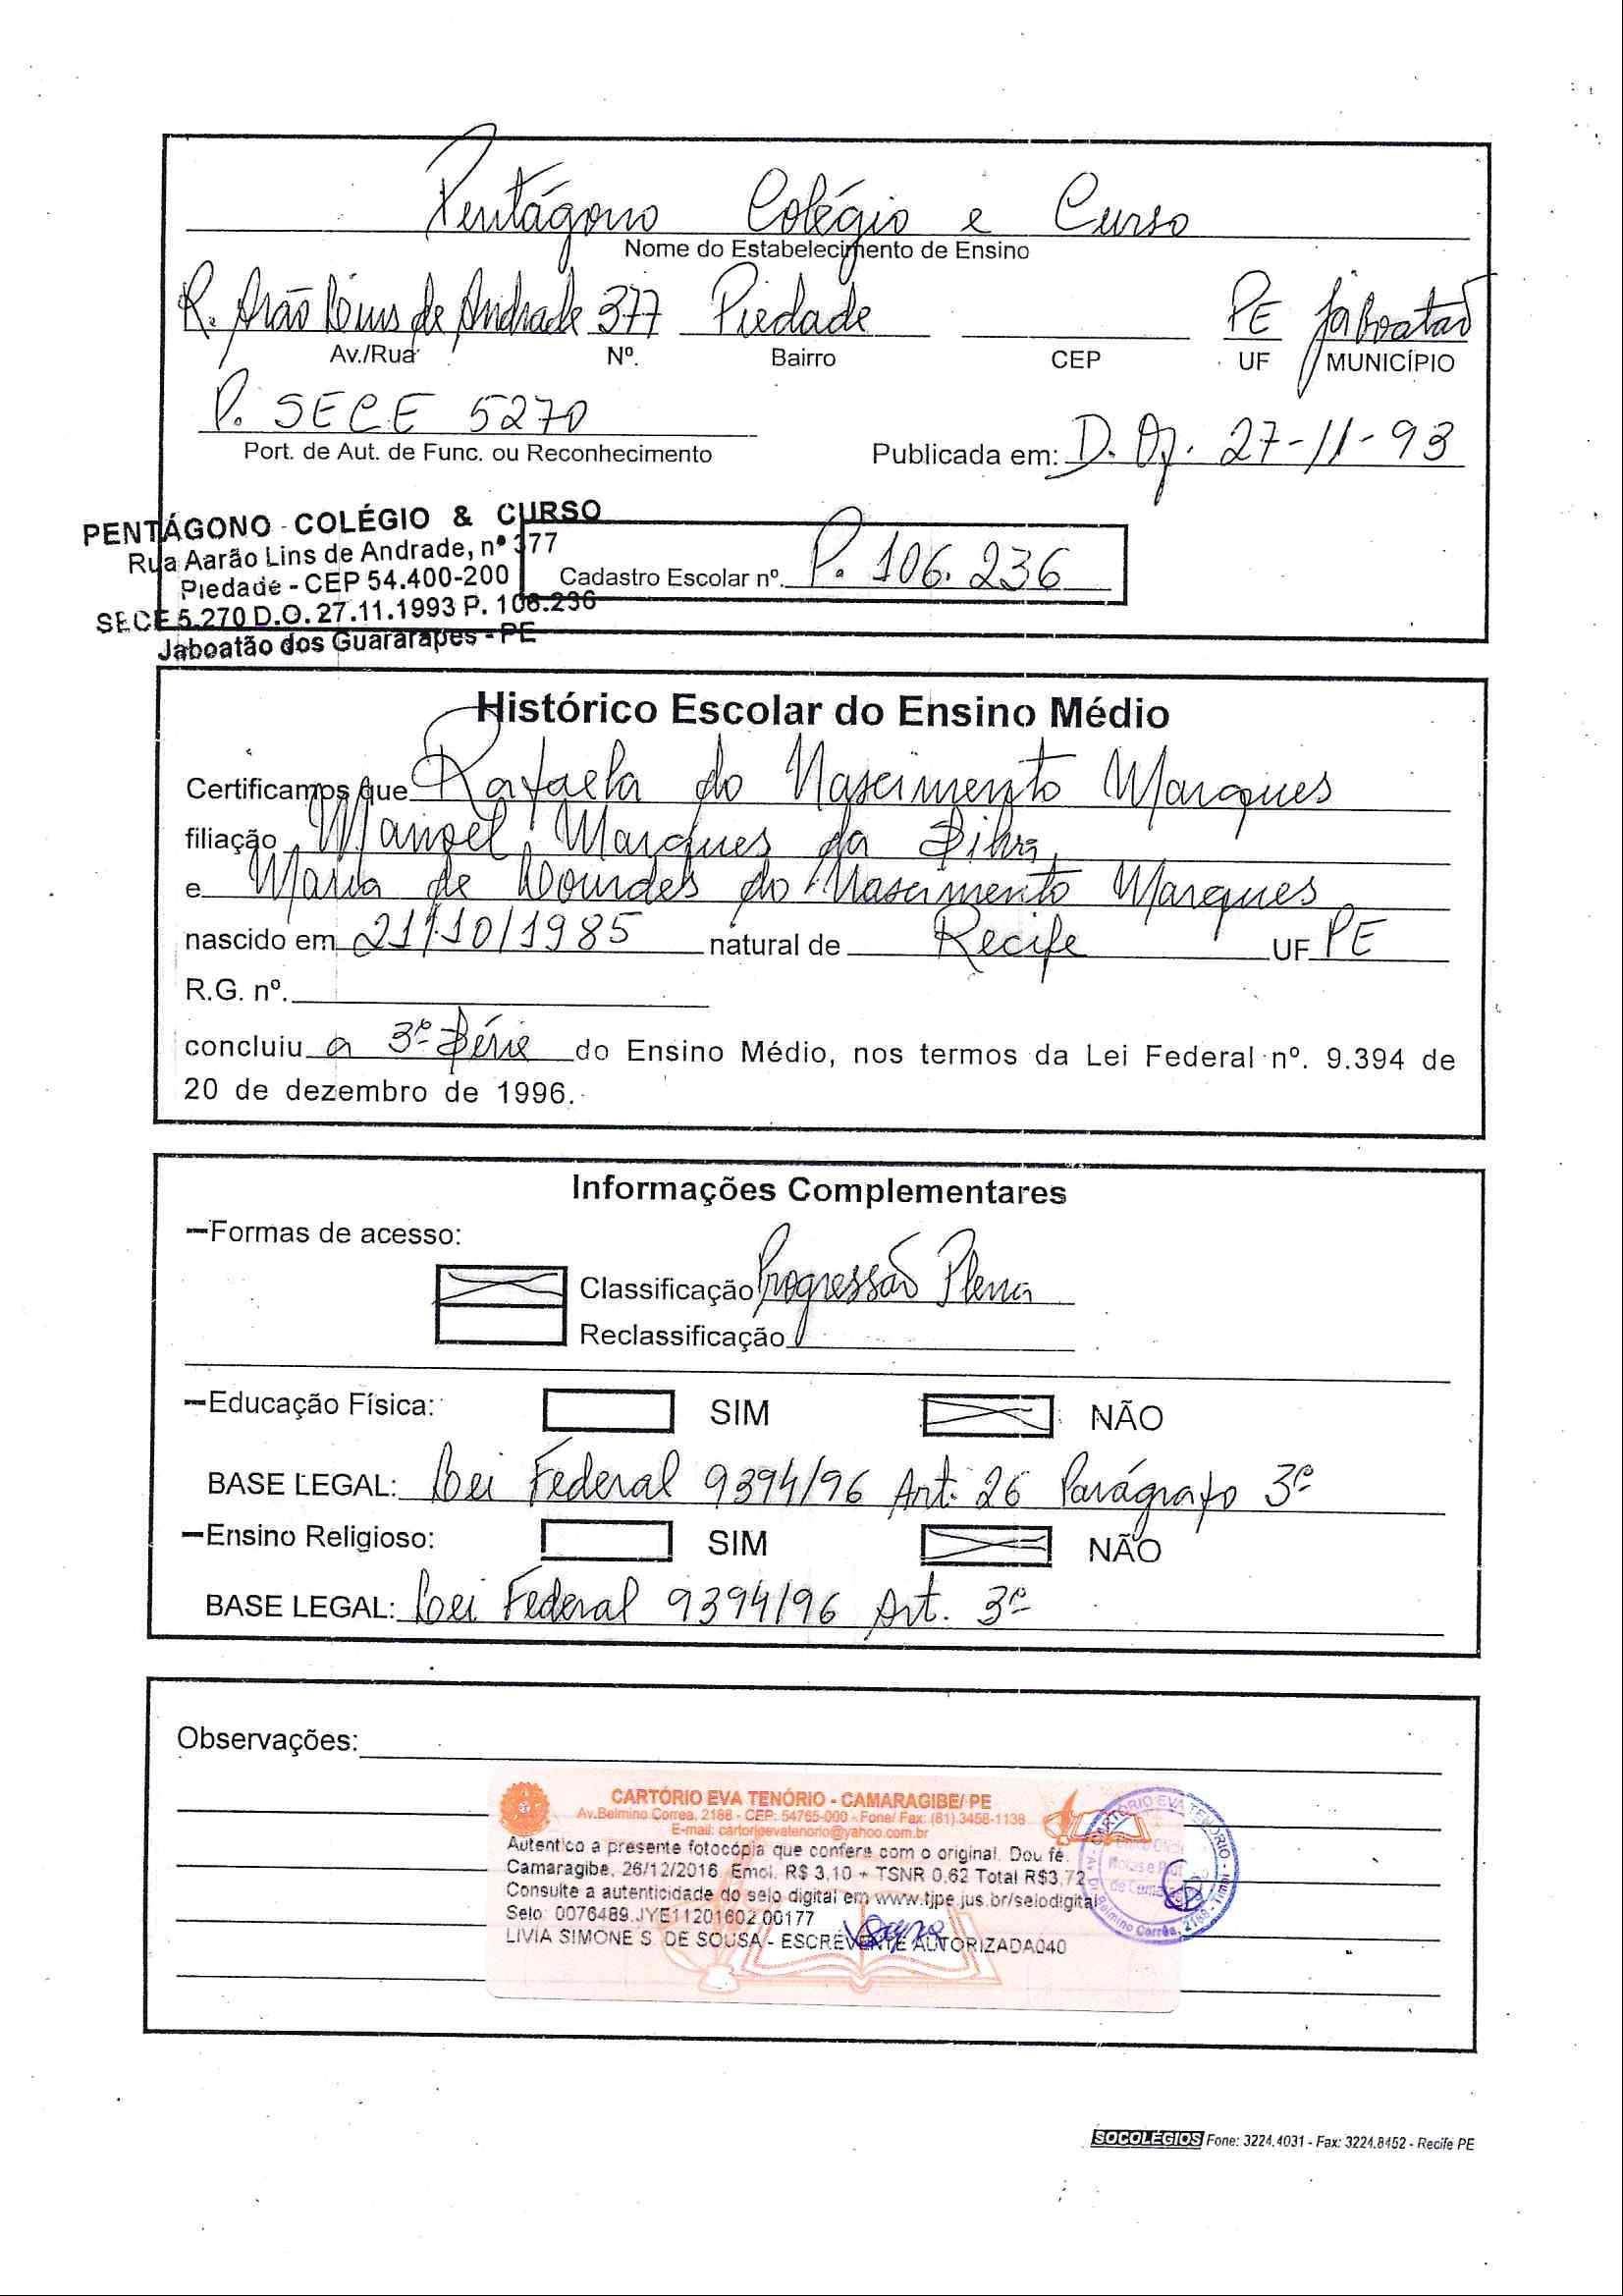 Pentágono Colégio e Curso
Nome do Estabelecimento de Ensino
R. Arão Lins de Andrade 377 Piedade PE Jaboatão
Av./Rua Nº. Bairro CEP UF MUNICÍPIO
P. SECE 5270
Port. de Aut. de Func. ou Reconhecimento
Publicada em: D. Of. 27-11-93
PENTÁGONO - COLÉGIO & CURSO
Rua Aarão Lins de Andrade, nº 377
Piedade - CEP 54.400-200
SECE 5.270 D.O. 27.11.1993 P. 106.236
Jaboatão dos Guararapes - PE
Cadastro Escolar nº. P. 106.236
Histórico Escolar do Ensino Médio
Certificamos que Rafaela do Nascimento Marques
filiação Manoel Marques da Silva
e Maria de Lourdes do Nascimento Marques
nascido em 21/10/1985 natural de Recife UF PE
R.G. nº.
concluiu a 3ª Série do Ensino Médio, nos termos da Lei Federal nº. 9.394 de
20 de dezembro de 1996.
Informações Complementares
–Formas de acesso:
Classificação Progressão Plena
Reclassificação
–Educação Física: SIM NÃO
BASE LEGAL: Lei Federal 9394/96 Art. 26 Parágrafo 3º
–Ensino Religioso: SIM NÃO
BASE LEGAL: Lei Federal 9394/96 Art. 3º
Observações:
CARTÓRIO EVA TENÓRIO - CAMARAGIBE/ PE
Av.Belmino Correa, 2188 - CEP: 54765-000 - Fone/ Fax: (81) 3458-1138
E-mail: cartorioevatenorio@yahoo.com.br
Autentico a presente fotocópia que confere com o original. Dou fé.
Camaragibe, 26/12/2016. Emol. R$ 3,10 + TSNR 0,62 Total R$3,72
Consulte a autenticidade do selo digital em www.tjpe.jus.br/selodigital
Selo: 0076489.JYE11201602.00177
LIVIA SIMONE S. DE SOUSA - ESCREVENTE AUTORIZADA040
CARTÓRIO EVA TENÓRIO
SOCOLÉGIOS Fone: 3224.4031 - Fax: 3224.8452 - Recife PE